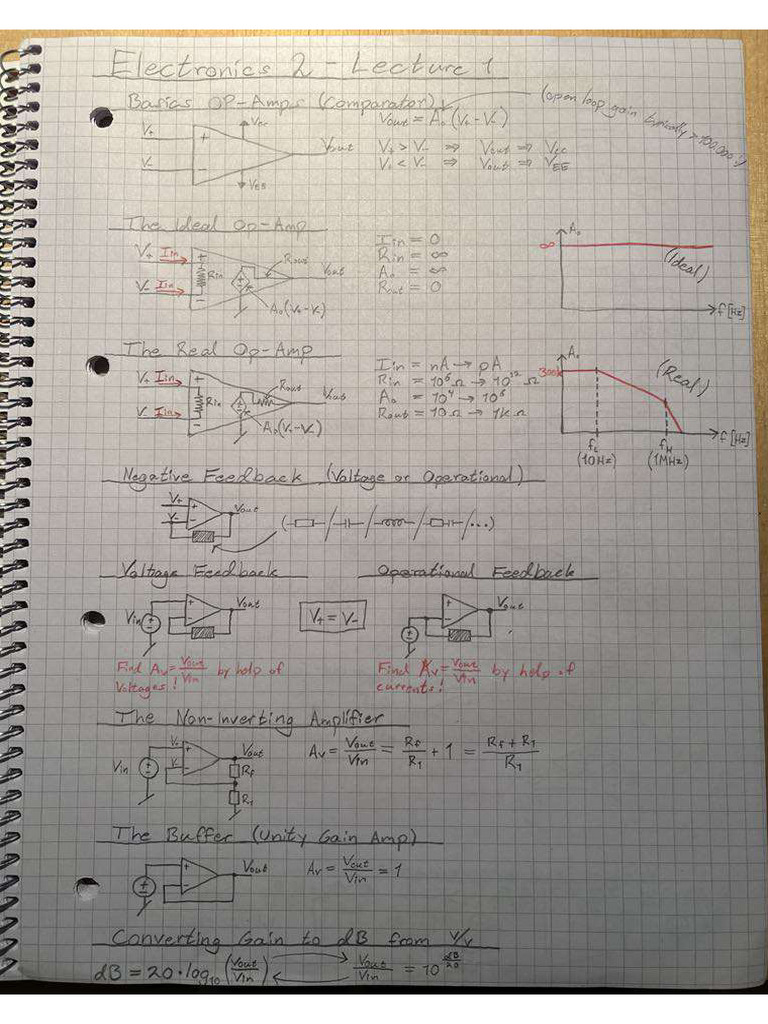 Electronics 2 - Lecture 1
Basics OP-Amps (Comparator)
(open loop gain typically > 100.000!)
V+
V-
Vcc
VEE
Vout
Vout = A₀(V+ - V-)
V+ > V- ⇒ Vout ⇒ Vcc
V+ < V- ⇒ Vout ⇒ VEE
The Ideal Op-Amp
V+ Iin
V- Iin
Rin
Rout
Vout
A₀(V+-V-)
Iin = 0
Rin = ∞
A₀ = ∞
Rout = 0
A₀
∞
(Ideal)
f[Hz]
The Real Op-Amp
V+ Iin
V- Iin
Rin
Rout
Vout
A₀(V+-V-)
Iin = nA → pA
Rin = 10⁶Ω → 10¹² Ω
A₀ = 10⁴ → 10⁶
Rout = 10Ω → 1kΩ
A₀
300k
(Real)
f[Hz]
fL
(10Hz)
fH
(1MHz)
Negative Feedback (Voltage or Operational)
V+
V-
Vout
( / / / /...)
Voltage Feedback
Operational Feedback
Vin
+
-
Vout
V+ = V-
+
-
Vout
Find Av = Vout/Vin by help of
voltages!
Find Av = Vout/Vin by help of
currents!
The Non-Inverting Amplifier
Vin
V+
V-
Vout
Rf
R1
Av = Vout/Vin = Rf/R1 + 1 = (Rf + R1)/R1
The Buffer (Unity Gain Amp)
+
-
Vout
Av = Vout/Vin = 1
Converting Gain to dB from V/V
dB = 20·log10(Vout/Vin)
Vout/Vin = 10^(dB/20)